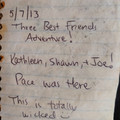 5/7/13
Three Best Friends
Adventure!
Kathleen, Shawn, + Joe!
Pace was Here
This is totally
wicked